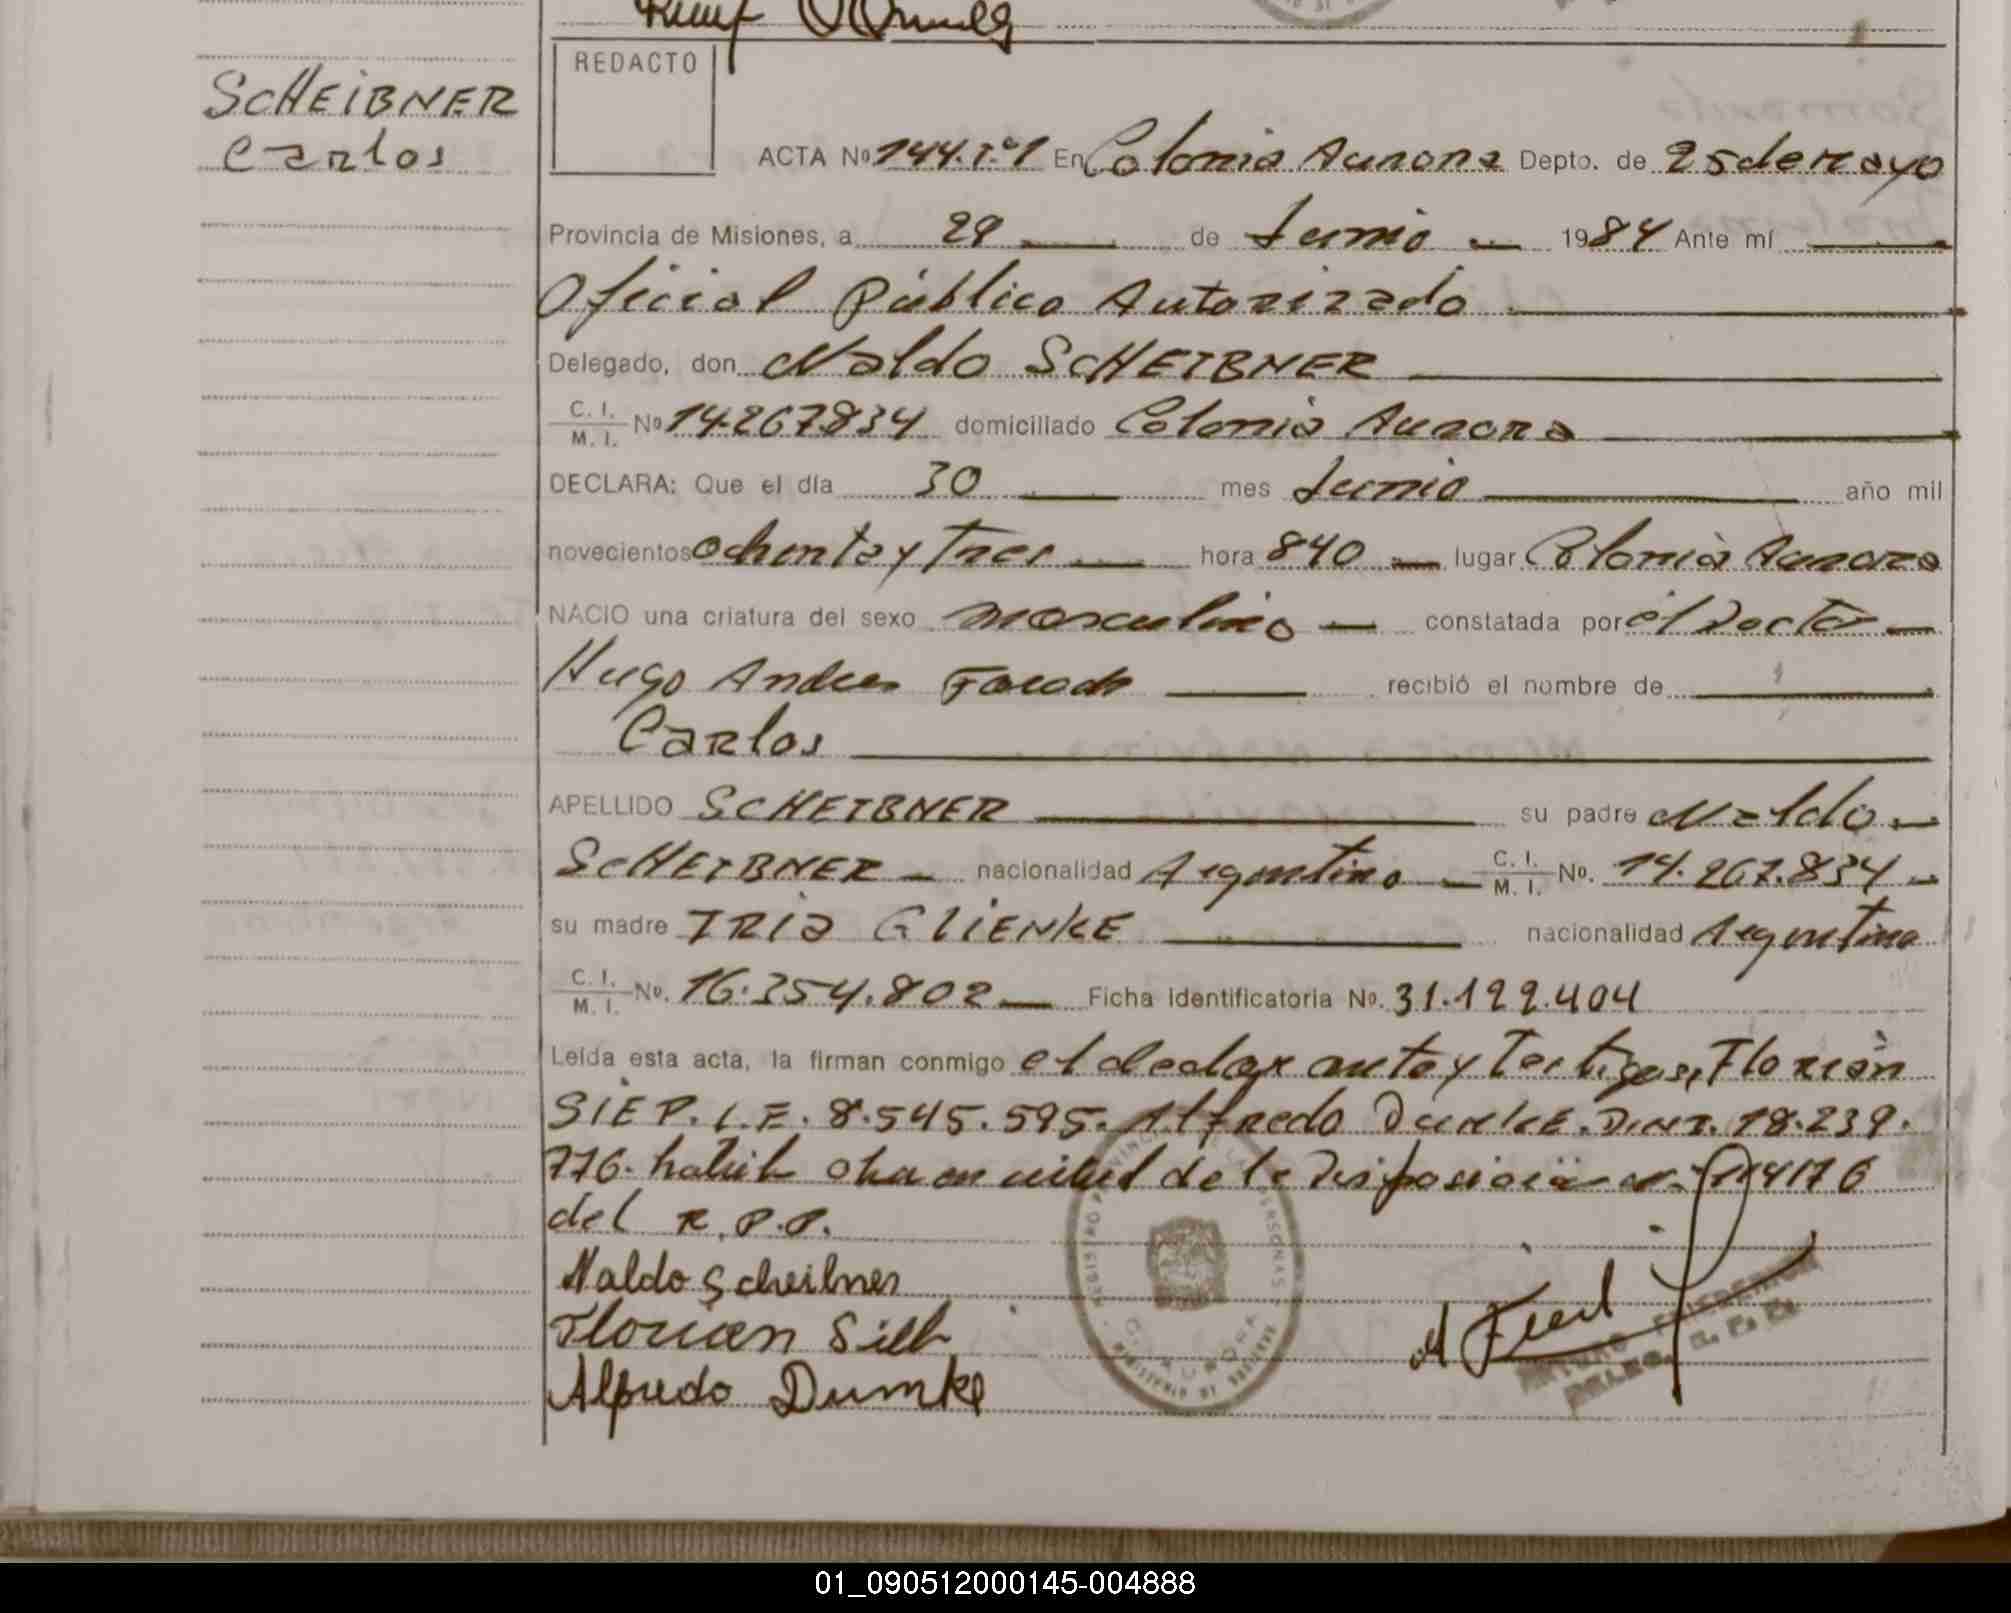 REDACTO
SCHEIBNER
Carlos
ACTA Nº 144.T.º1 En Colonia Aurora Depto. de 25 de Mayo
Provincia de Misiones, a 29 de Junio 1984 Ante mí
Oficial Público Autorizado
Delegado, don Naldo SCHEIBNER
C. I. / M. I. Nº 14.267.834 domiciliado Colonia Aurora
DECLARA: Que el día 30 mes Junio año mil
novecientos ochenta y tres hora 840 lugar Colonia Aurora
NACIO una criatura del sexo masculino constatada por el Doctor
Hugo Andres recibió el nombre de
Carlos
APELLIDO SCHEIBNER su padre Naldo
SCHEIBNER nacionalidad Argentino C. I. / M. I. Nº. 14.267.834
su madre IRIA GLIENKE nacionalidad Argentina
C. I. / M. I. Nº. 16.354.802 Ficha Identificatoria Nº. 31.199.404
Leída esta acta, la firman conmigo el declarante y Testigos, Florián
SIEP. L.E. 8.545.595. Alfredo DUMKE. D.N.I. 18.239.
776. en virtud de la Disposición 114176
del R.P.P.
Naldo Scheibner
Florian Sieb
Alfredo Dumke
REGISTRO PROVINCIAL DE LAS PERSONAS
C. AURORA
MINISTERIO DE GOBIERNO
01_090512000145-004888